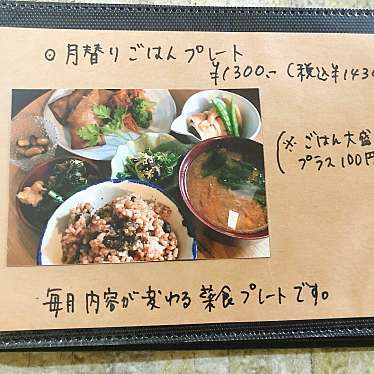 ◎月替りごはんプレート
¥1300-(税込¥1430
(※ごはん大盛
プラス100円
毎月内容が変わる菜食プレートです。